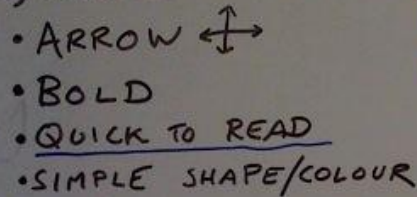 • ARROW
• BOLD
• QUICK TO READ
• SIMPLE SHAPE/COLOUR